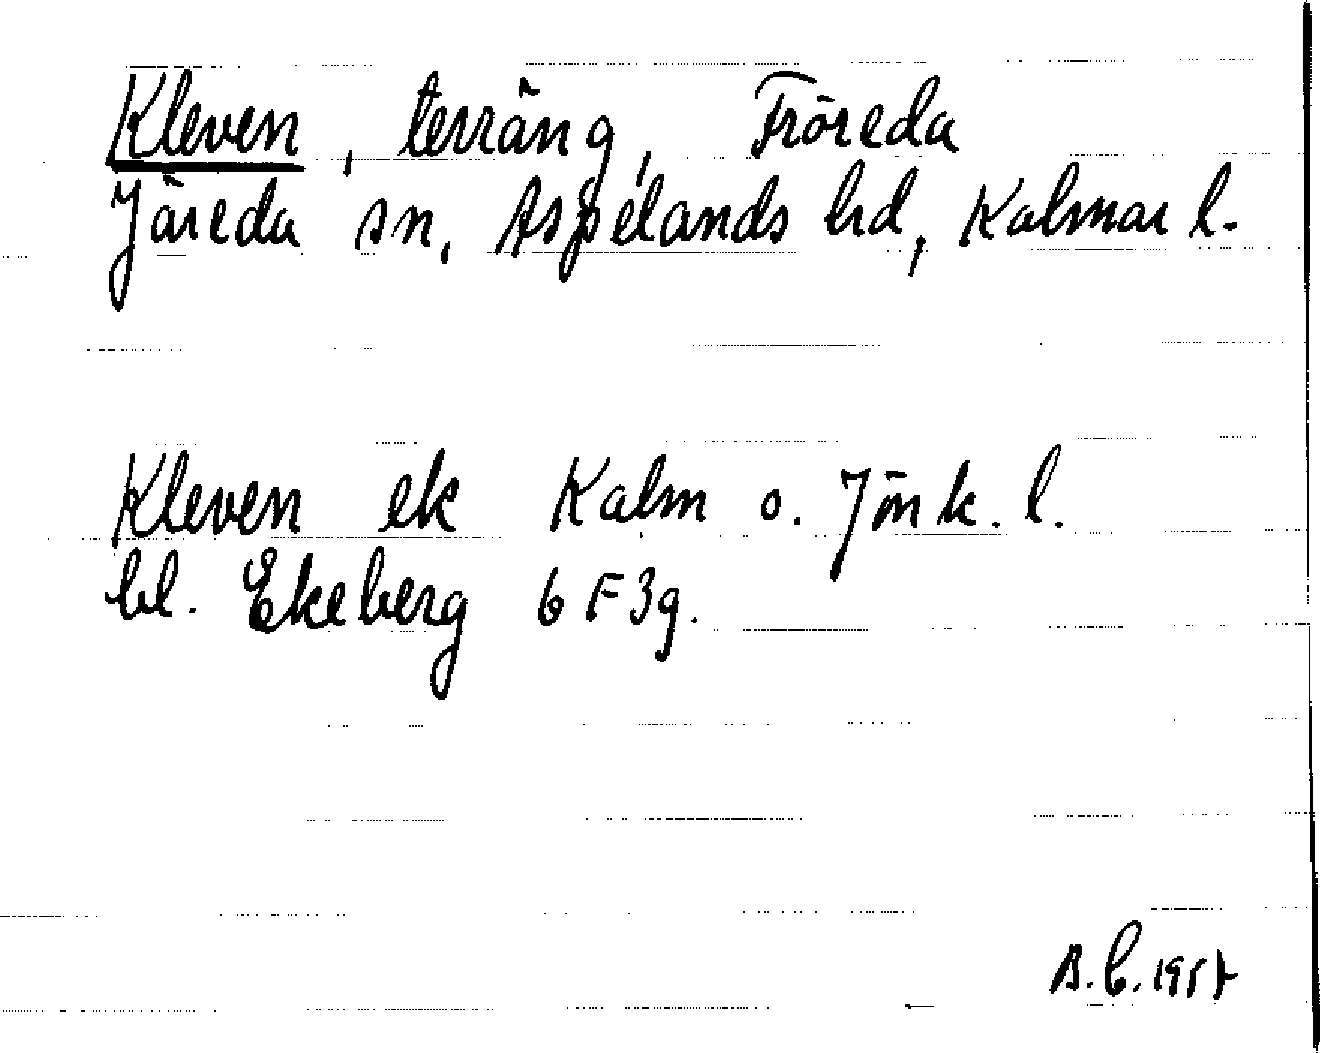 Kleven, terräng, Fröreda
Järeda sn, Aspelands hd, Kalmar l.
Kleven ek Kalm o. Jönk. l.
bl. Ekeberg 6F3g.
B.C. 1957